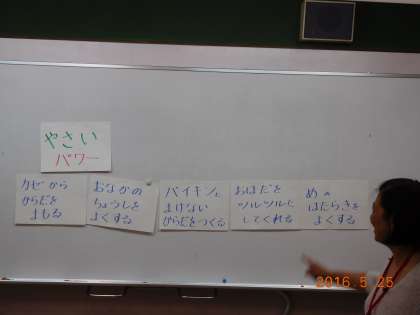 やさい
パワー
カゼから
からだを
まもる
おなかの
ちょうしを
よくする
バイキンに
まけない
からだをつくる
おはだを
ツルツルに
してくれる
めの
はたらきを
よくする
2016.5.25